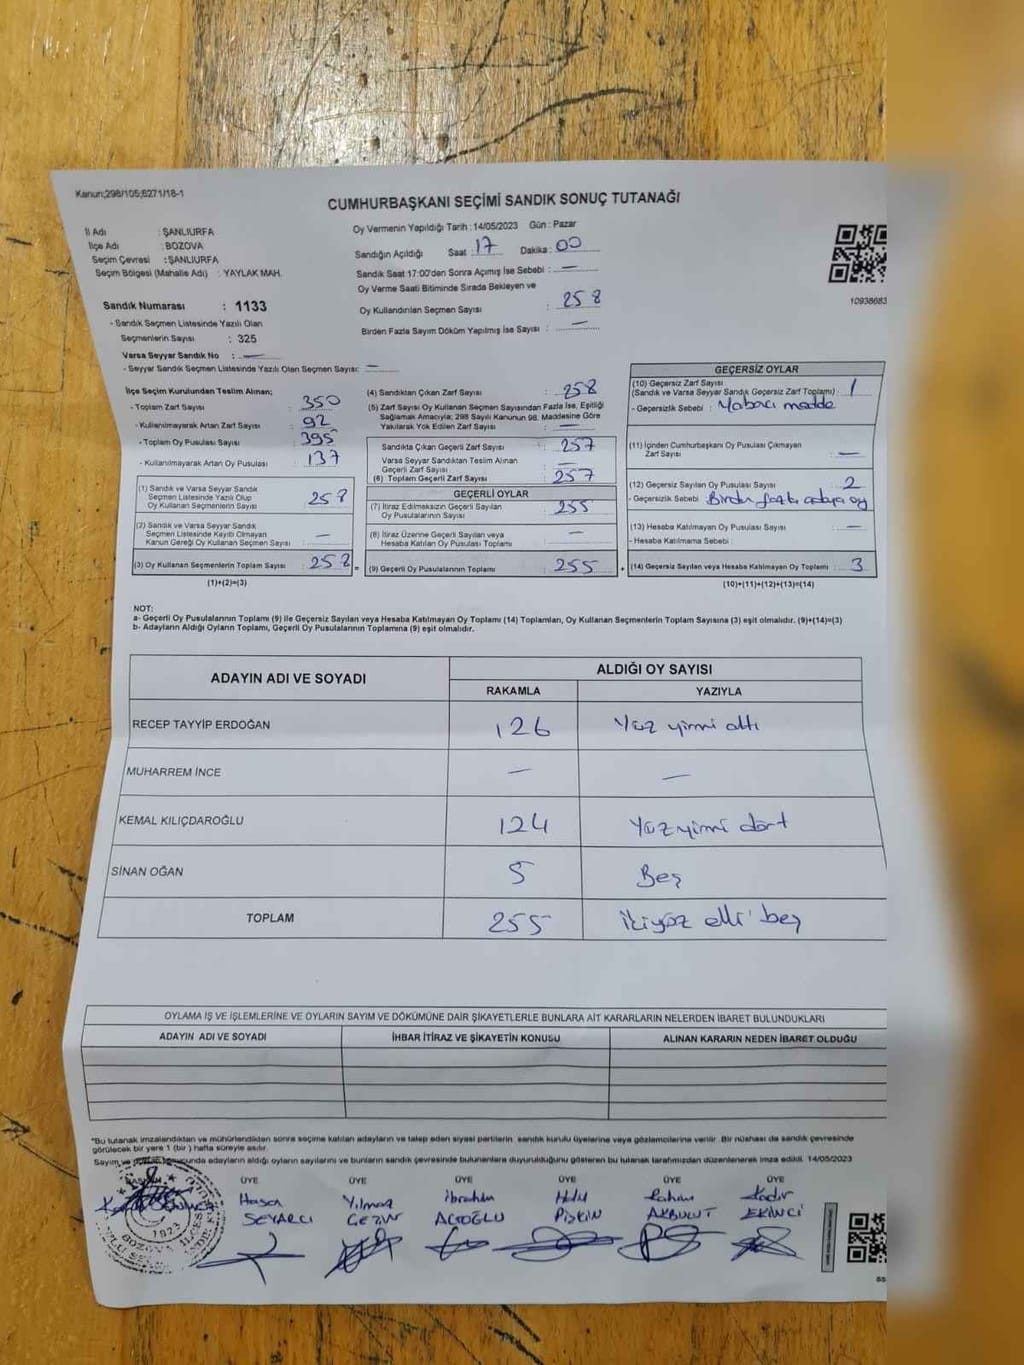 Kanun;298/105;6271/18-1
CUMHURBAŞKANI SEÇİMİ SANDIK SONUÇ TUTANAĞI
İl Adı : ŞANLIURFA
İlçe Adı : BOZOVA
Seçim Çevresi : ŞANLIURFA
Seçim Bölgesi (Mahalle Adı) : YAYLAK MAH.
Oy Vermenin Yapıldığı Tarih : 14/05/2023 Gün : Pazar
Sandığın Açıldığı Saat 17 Dakika : 00
Sandık Saat 17:00'den Sonra Açımış İse Sebebi : —
Oy Verme Saati Bitiminde Sırada Bekleyen ve
Oy Kullandırılan Seçmen Sayısı : 258
Birden Fazla Sayım Döküm Yapılmış İse Sayısı : —
10938683
Sandık Numarası : 1133
- Sandık Seçmen Listesinde Yazılı Olan
Seçmenlerin Sayısı : 325
Varsa Seyyar Sandık No : —
- Seyyar Sandık Seçmen Listesinde Yazılı Olan Seçmen Sayısı: —
İlçe Seçim Kurulundan Teslim Alınan;
- Toplam Zarf Sayısı : 350
- Kullanılmayarak Artan Zarf Sayısı : 92
- Toplam Oy Pusulası Sayısı : 395
- Kullanılmayarak Artan Oy Pusulası : 137
(1) Sandık ve Varsa Seyyar Sandık
Seçmen Listesinde Yazılı Olup
Oy Kullanan Seçmenlerin Sayısı : 258
(2) Sandık ve Varsa Seyyar Sandık
Seçmen Listesinde Kayıtlı Olmayan
Kanun Gereği Oy Kullanan Seçmen Sayısı : —
(3) Oy Kullanan Seçmenlerin Toplam Sayısı : 258 =
(1)+(2)=(3)
(4) Sandıktan Çıkan Zarf Sayısı : 258
(5) Zarf Sayısı Oy Kullanan Seçmen Sayısından Fazla İse, Eşitliği
Sağlamak Amacıyla; 298 Sayılı Kanunun 98. Maddesine Göre
Yakılarak Yok Edilen Zarf Sayısı : —
Sandıkta Çıkan Geçerli Zarf Sayısı : 257
Varsa Seyyar Sandıktan Teslim Alınan
Geçerli Zarf Sayısı : —
(6) Toplam Geçerli Zarf Sayısı : 257
GEÇERLİ OYLAR
(7) İtiraz Edilmeksizin Geçerli Sayılan
Oy Pusulalarının Sayısı : 255
(8) İtiraz Üzerine Geçerli Sayılan veya
Hesaba Katılan Oy Pusulası Toplamı : —
(9) Geçerli Oy Pusulalarının Toplamı : 255 +
GEÇERSİZ OYLAR
(10) Geçersiz Zarf Sayısı
(Sandık ve Varsa Seyyar Sandık Geçersiz Zarf Toplamı) : 1
- Geçersizlik Sebebi : Yabacı madde
(11) İçinden Cumhurbaşkanı Oy Pusulası Çıkmayan
Zarf Sayısı : —
(12) Geçersiz Sayılan Oy Pusulası Sayısı : 2
- Geçersizlik Sebebi : Birden fazla adaya oy
(13) Hesaba Katılmayan Oy Pusulası Sayısı : —
- Hesaba Katılmama Sebebi :
(14) Geçersiz Sayılan veya Hesaba Katılmayan Oy Toplamı : 3
(10)+(11)+(12)+(13)=(14)
NOT:
a- Geçerli Oy Pusulalarının Toplamı (9) ile Geçersiz Sayılan veya Hesaba Katılmayan Oy Toplamı (14) Toplamları, Oy Kullanan Seçmenlerin Toplam Sayısına (3) eşit olmalıdır. (9)+(14)=(3)
b- Adayların Aldığı Oyların Toplamı, Geçerli Oy Pusulalarının Toplamına (9) eşit olmalıdır.
ADAYIN ADI VE SOYADI ALDIĞI OY SAYISI
RAKAMLA YAZIYLA
RECEP TAYYİP ERDOĞAN 126 Yüz yirmi altı
MUHARREM İNCE — —
KEMAL KILIÇDAROĞLU 124 Yüz yirmi dört
SİNAN OĞAN 5 Beş
TOPLAM 255 ikiyüz elli beş
OYLAMA İŞ VE İŞLEMLERİNE VE OYLARIN SAYIM VE DÖKÜMÜNE DAİR ŞİKAYETLERLE BUNLARA AİT KARARLARIN NELERDEN İBARET BULUNDUKLARI
ADAYIN ADI VE SOYADI İHBAR İTİRAZ VE ŞİKAYETİN KONUSU ALINAN KARARIN NEDEN İBARET OLDUĞU
"Bu tutanak imzalandıktan ve mühürlendikten sonra seçime katılan adayların ve talep eden siyasi partilerin sandık kurulu üyelerine veya gözlemcilerine verilir. Bir nüshası da sandık çevresinde
görülecek bir yere 1 (bir) hafta süreyle asılır.
Sayım ve sonucunda adayların aldığı oyların sayılarını ve bunların sandık çevresinde bulunanlara duyurulduğunu gösteren bu tutanak tarafımızdan düzenlenerek imza edildi. 14/05/2023
ÜYE ÜYE ÜYE ÜYE ÜYE ÜYE
Hasan Yılmaz İbrahim Halil Rahim Kadir
SEYARCI GEZER ACIOĞLU PİŞKİN AKBULUT EKİNCİ
1923